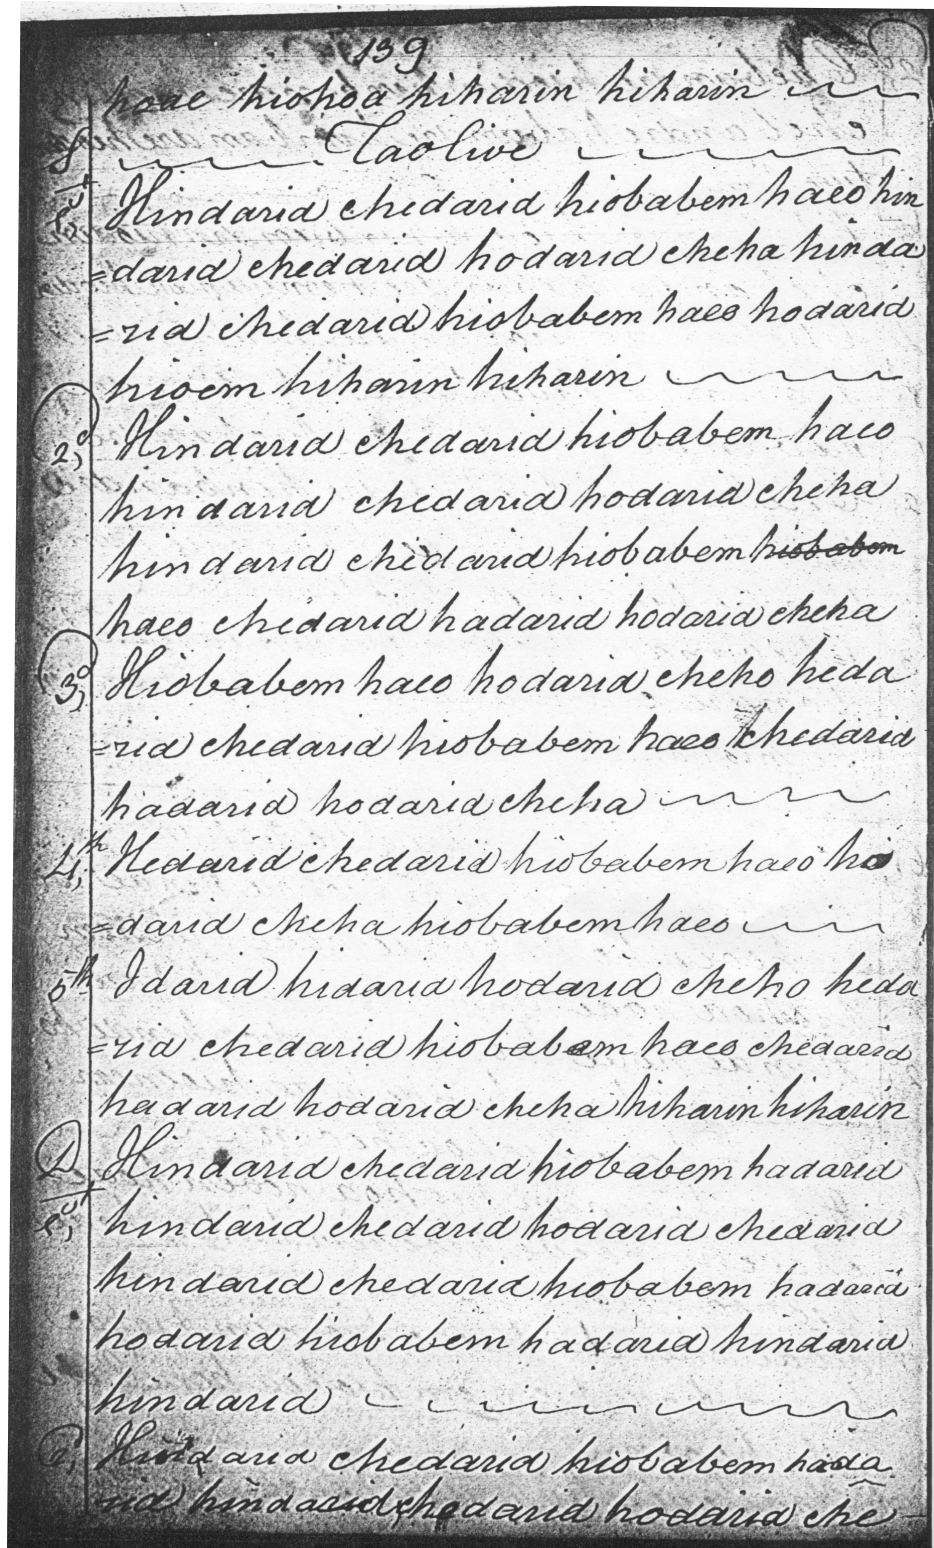 139
hoae hiohoa hiharin hiharin
S Taolive
1st Hindarid chedarid hiobabem haeo hin
=darid chedarid hodarid cheha hinda
=rid chedarid hiobabem haeo hodarid
hioem hiharin hiharin
2d, Hindarid chedarid hiobabem haeo
hindarid chedarid hodarid cheha
hindarid chedarid hiobabem hiobabem
haeo chedarid hadarid hodarid cheha
3d, Hiobabem haeo hodarid cheho heda
=rid chedarid hiobabem haeo chedarid
hadarid hodarid cheha
4th, Hedarid chedarid hiobabem haeo ho
=darid cheha hiobabem haeo
5th Idarid hidarid hodarid cheho heda
=rid chedarid hiobabem haeo chedarid
hadarid hodarid cheha hiharin hiharin
D
1st, Hindarid chedarid hiobabem hadarid
hindarid chedarid hodarid chedarid
hindarid chedarid hiobabem hadarid
hodarid hiobabem hadarid hindarid
hindarid
Hindarid chedarid hiobabem hada
rid hindarid chedarid hodarid che